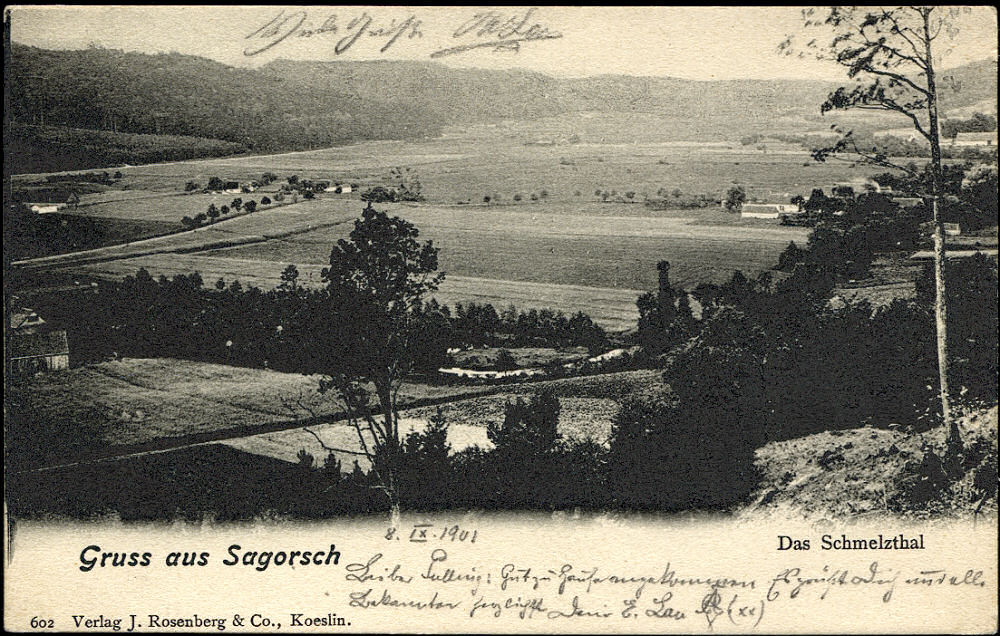 Viele Grüße
8. IX. 1901
Gruss aus Sagorsch
Das Schmelzthal
Lieber Gut zu Hause angekommen Es grüßt Dich und alle
Bekannten herzlichst Dein E. (xx)
602 Verlag J. Rosenberg & Co., Koeslin.